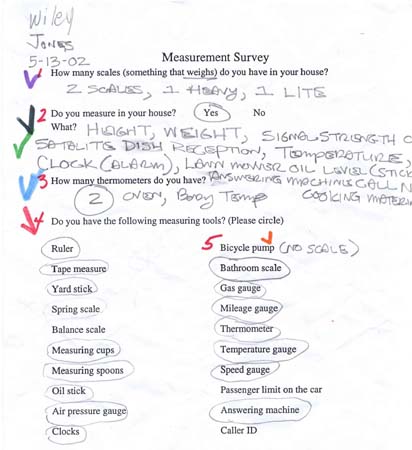 Wiley
Jones
5-13-02
Measurement Survey
1 How many scales (something that weighs) do you have in your house?
2 SCALES, 1 HEAVY, 1 LITE
2 Do you measure in your house? Yes No
What? HEIGHT, WEIGHT, SIGNAL STRENGTH O
SATALITE DISH RECEPTION, TEMPERATURE,
CLOCK (ALARM), LAWN MOWER OIL LEVEL (STICK
3 How many thermometers do you have? ANSWERING MACHINE CALL N
2 OVEN, Body Temp COOKING MATERI
4 Do you have the following measuring tools? (Please circle)
Ruler
Tape measure
Yard stick
Spring scale
Balance scale
Measuring cups
Measuring spoons
Oil stick
Air pressure gauge
Clocks
5 Bicycle pump (NO SCALE)
Bathroom scale
Gas gauge
Mileage gauge
Thermometer
Temperature gauge
Speed gauge
Passenger limit on the car
Answering machine
Caller ID